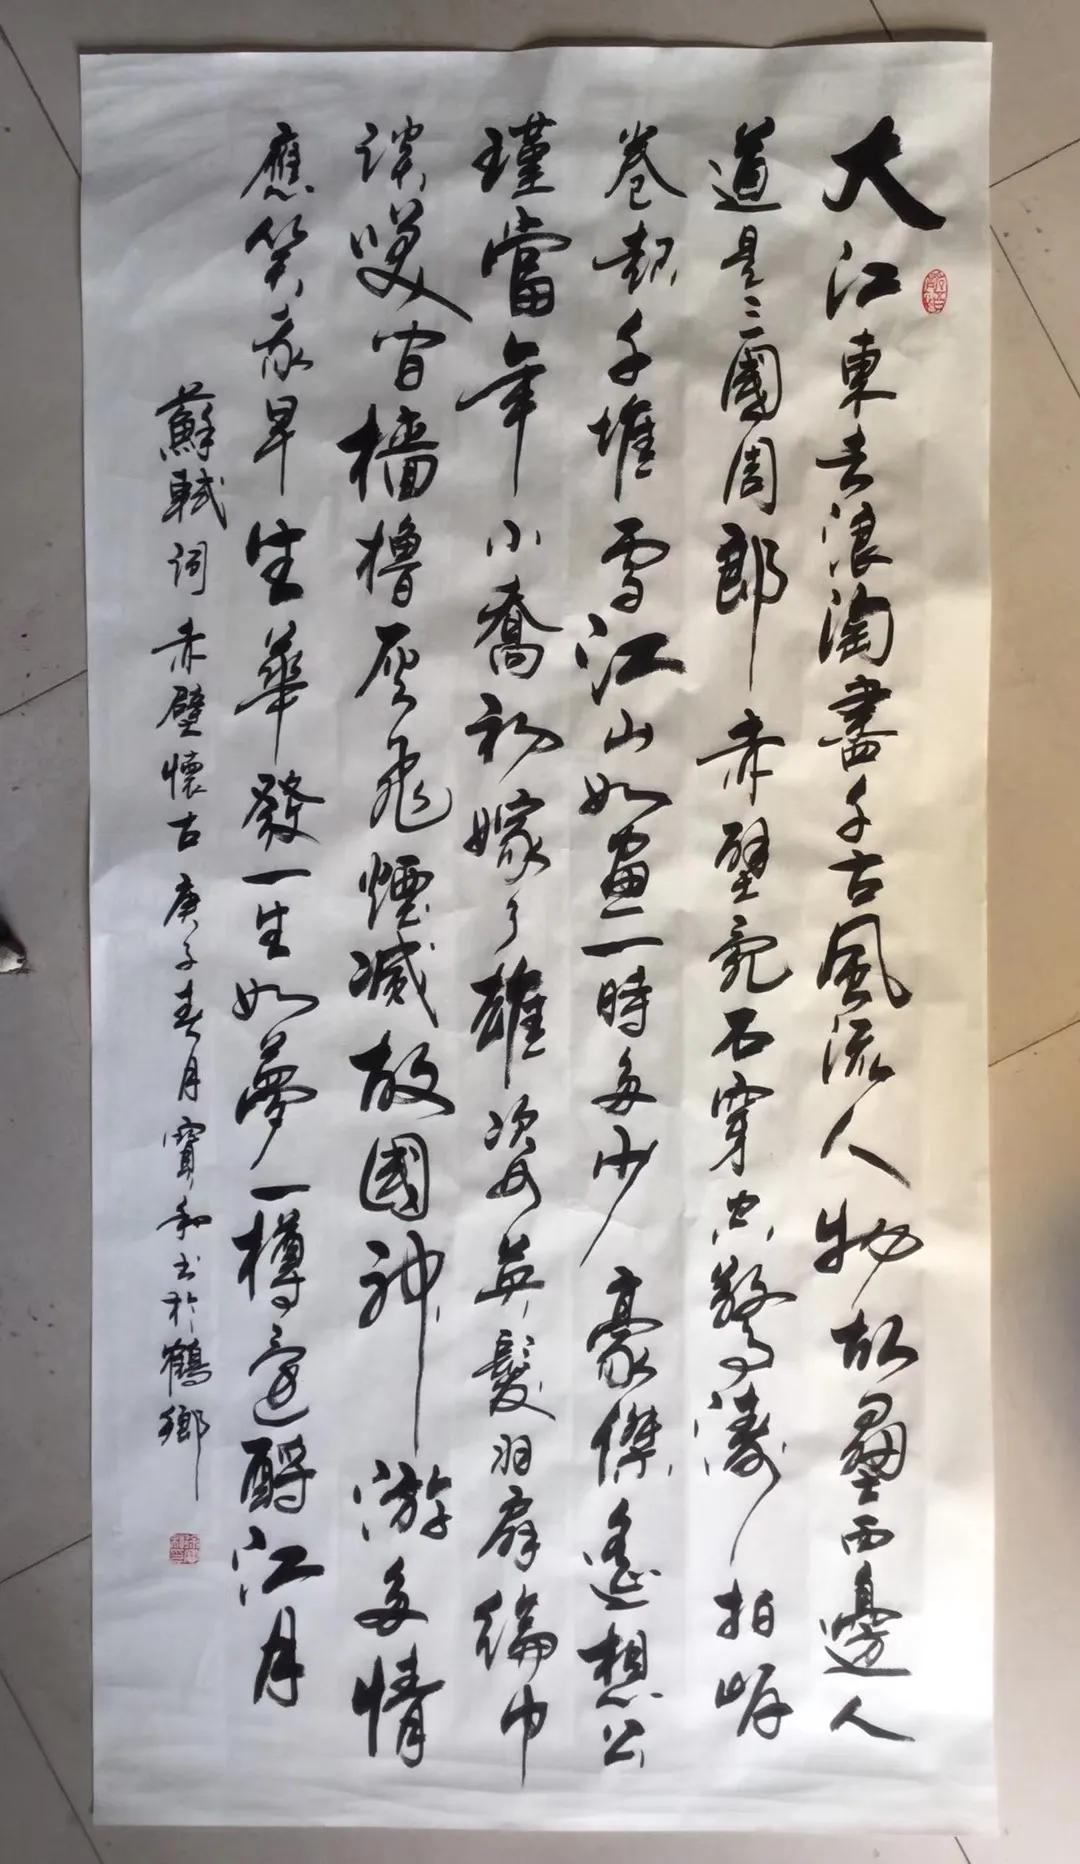 大江東去浪淘盡千古風流人物故壘西邊人
道是三國周郎赤壁亂石穿空驚濤拍岸
卷起千堆雪江山如畫一時多少豪傑遙想公
瑾當年小喬初嫁了雄姿英發羽扇綸巾
談笑間檣櫓灰飛煙滅故國神游多情
應笑我早生華發一生如夢一樽還酹江月
蘇軾詞赤壁懷古庚子春月寶和書於鶴鄉